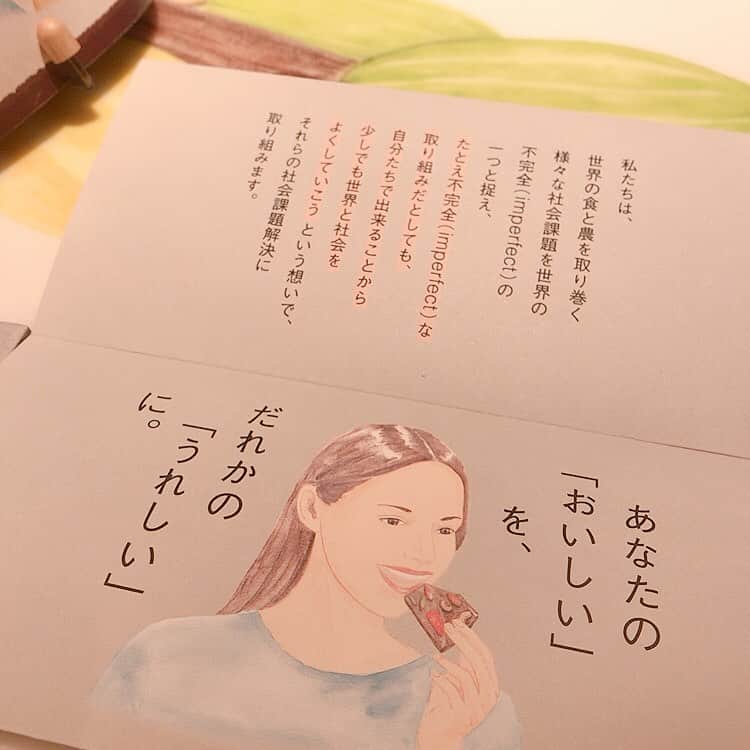 私たちは、
世界の食と農を取り巻く
様々な社会課題を世界の
不完全（imperfect）の
一つと捉え、
たとえ不完全（imperfect）な
取り組みだとしても、
自分たちで出来ることから
少しでも世界と社会を
よくしていこう という想いで、
それらの社会課題解決に
取り組みます。
あなたの
「おいしい」
を、
だれかの
「うれしい」
に。